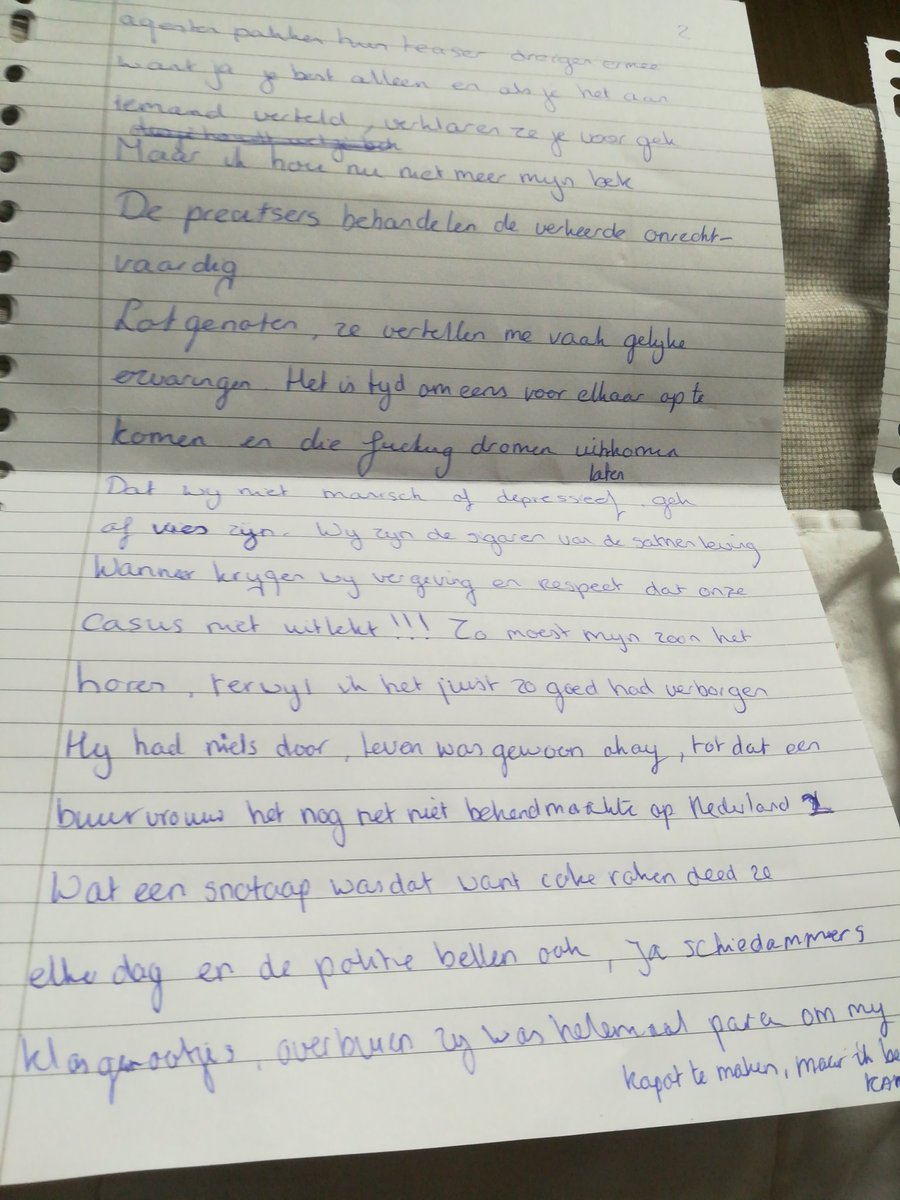 2
agenten pakken hun teaser dreigen ermee
want ja je bent alleen en als je het aan
iemand verteld, verklaren ze je voor gek
Maar ik hou nu niet meer mijn bek
De preutsers behandelen de verkeerde onrecht-
vaardig
Lotgenoten, ze vertellen me vaak gelijke
ervaringen. Het is tijd om eens voor elkaar op te
komen en die fucking dromen uitkomen
laten
Dat wij niet manisch of depressief, gek
of vies zijn. Wij zijn de sigaren van de samenleving
Wanneer krijgen wij vergeving en respect dat onze
casus niet uitlekt!!! Zo moest mijn zoon het
horen, terwijl ik het juist zo goed had verborgen
Hij had niets door, leven was gewoon okay, tot dat een
buurvrouw het nog net niet bekendmaakte op Nederland 1
Wat een snotaap was dat want coke roken deed ze
elke dag en de politie bellen ook, ja schiedammers
klasgenootjes, overburen zij was helemaal para om mij
kapot te maken, maar ik be